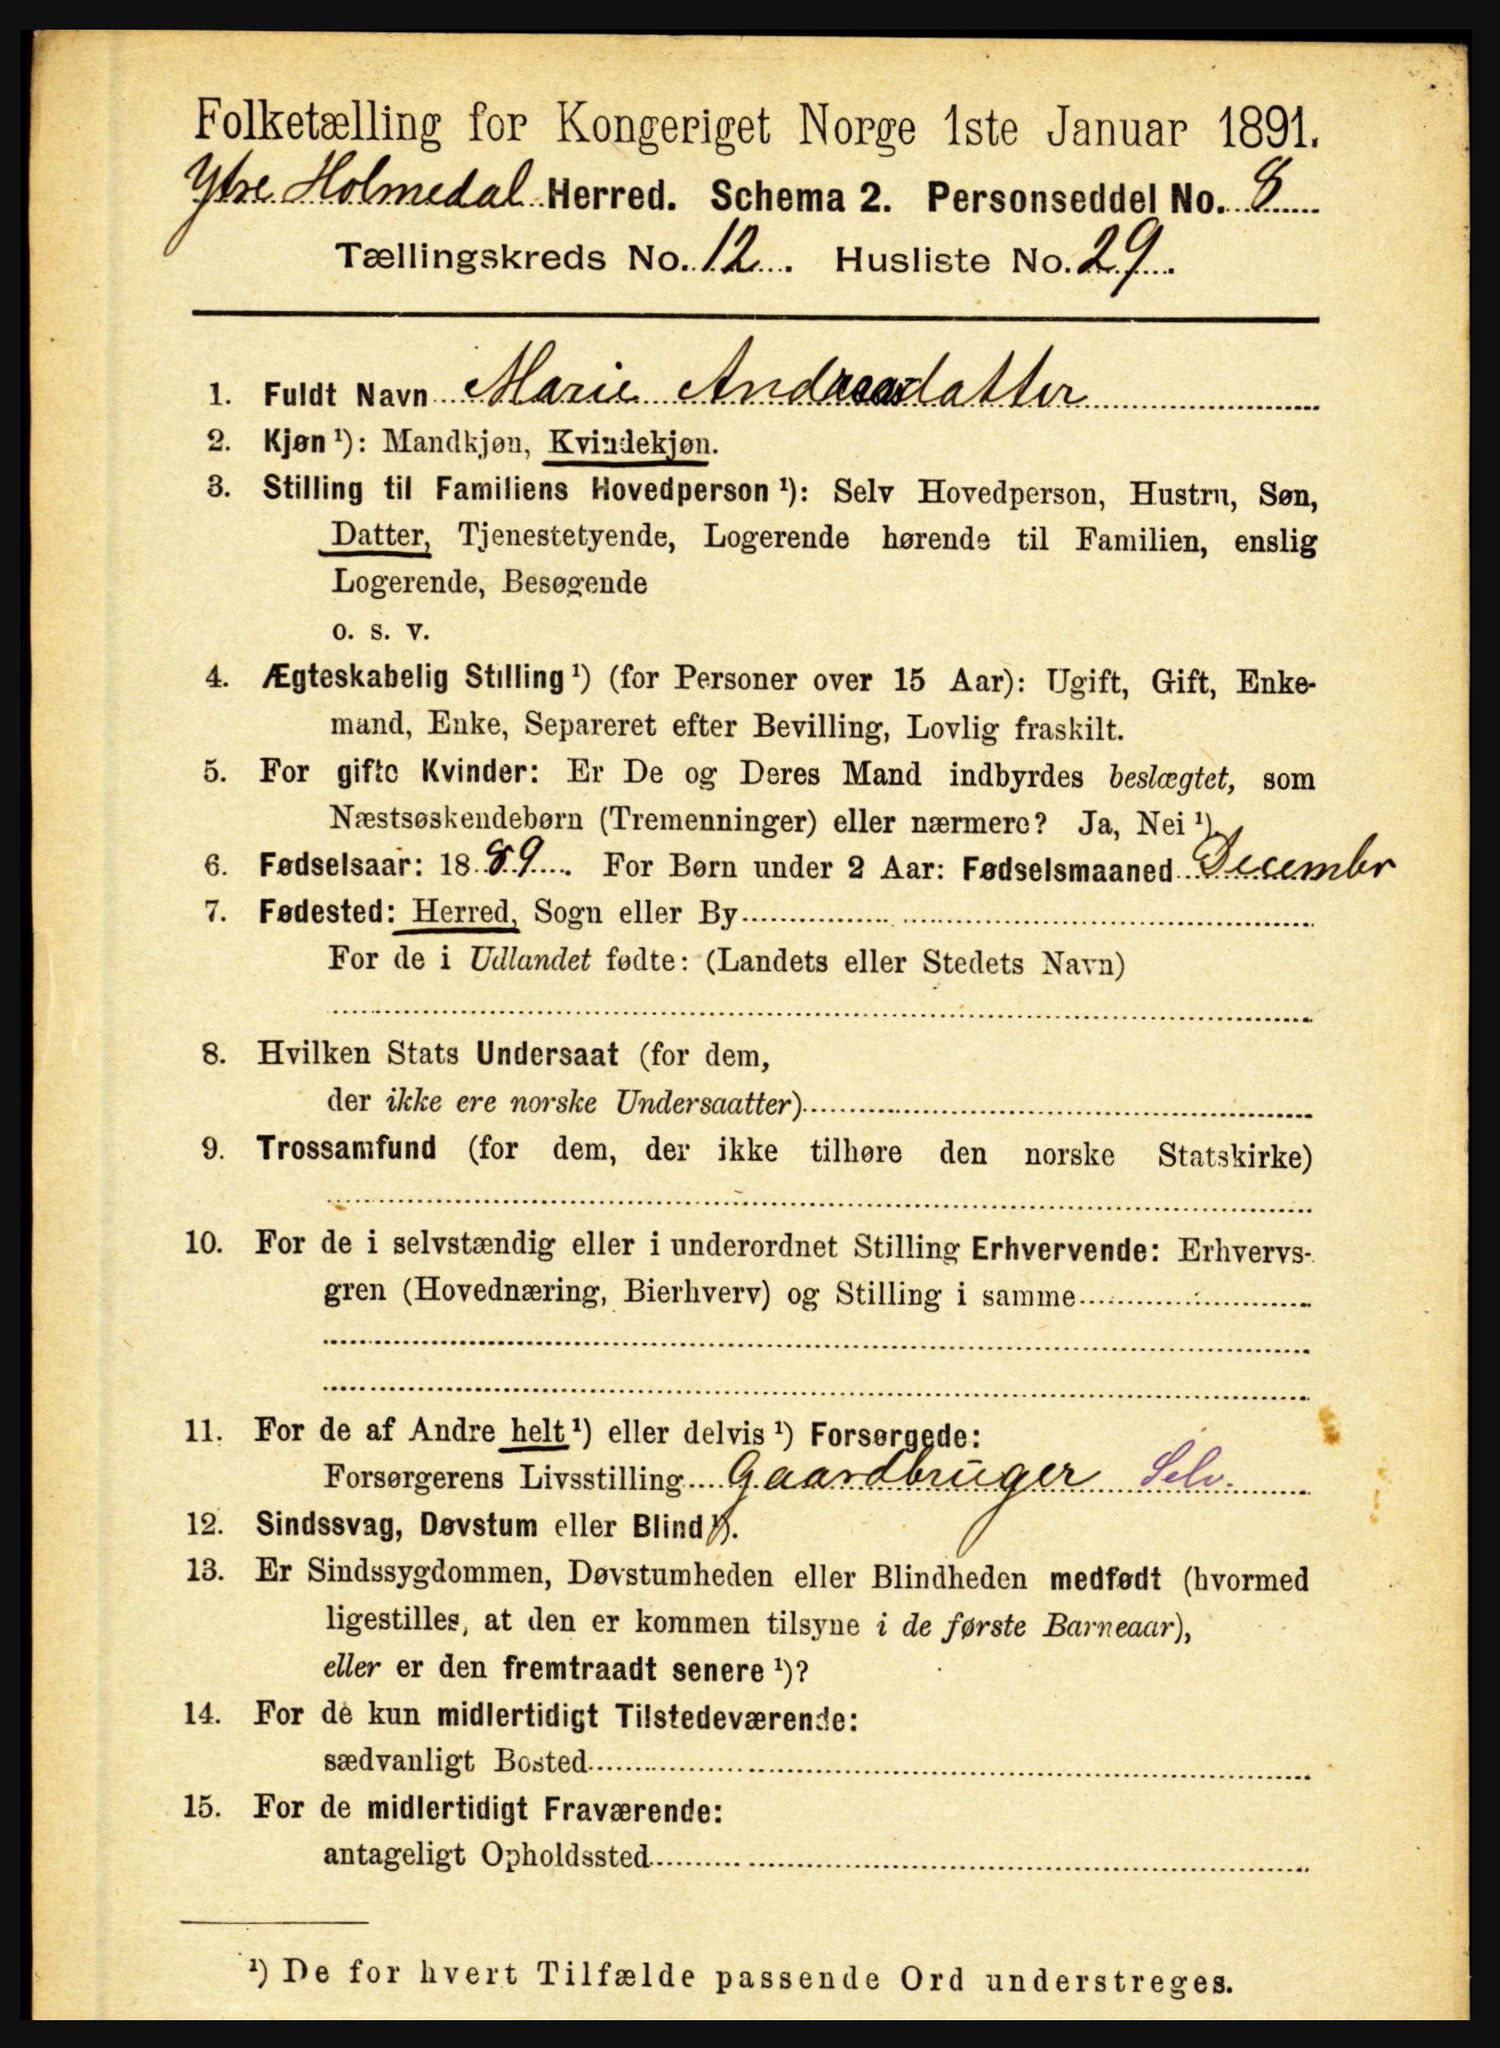 Folketælling for Kongeriget Norge 1ste Januar 1891.
Ytre Holmedal Herred. Schema 2. Personseddel No. 8
Tællingskreds No. 12. Husliste No. 29.
1. Fuldt Navn Marie Andreasdatter
2. Kjøn ¹): Mandkjøn, Kvindekjøn.
3. Stilling til Familiens Hovedperson ¹): Selv Hovedperson, Hustru, Søn,
Datter, Tjenestetyende, Logerende hørende til Familien, enslig
Logerende, Besøgende
o. s. v.
4. Ægteskabelig Stilling ¹) (for Personer over 15 Aar): Ugift, Gift, Enke-
mand, Enke, Separeret efter Bevilling, Lovlig fraskilt.
5. For gifte Kvinder: Er De og Deres Mand indbyrdes beslægtet, som
Næstsøskendebørn (Tremenninger) eller nærmere? Ja, Nei ¹).
6. Fødselsaar: 1889. For Børn under 2 Aar: Fødselsmaaned Decembr
7. Fødested: Herred, Sogn eller By
For de i Udlandet fødte: (Landets eller Stedets Navn)
8. Hvilken Stats Undersaat (for dem,
der ikke ere norske Undersaatter)
9. Trossamfund (for dem, der ikke tilhøre den norske Statskirke)
10. For de i selvstændig eller i underordnet Stilling Erhvervende: Erhvervs-
gren (Hovednæring, Bierhverv) og Stilling i samme
11. For de af Andre helt ¹) eller delvis ¹) Forsørgede:
Forsørgerens Livsstilling Gaardbruger Selv.
12. Sindssvag, Døvstum eller Blind ¹).
13. Er Sindssygdommen, Døvstumheden eller Blindheden medfødt (hvormed
ligestilles, at den er kommen tilsyne i de første Barneaar),
eller er den fremtraadt senere ¹)?
14. For de kun midlertidigt Tilstedeværende:
sædvanligt Bosted
15. For de midlertidigt Fraværende:
antageligt Opholdssted
¹) De for hvert Tilfælde passende Ord understreges.